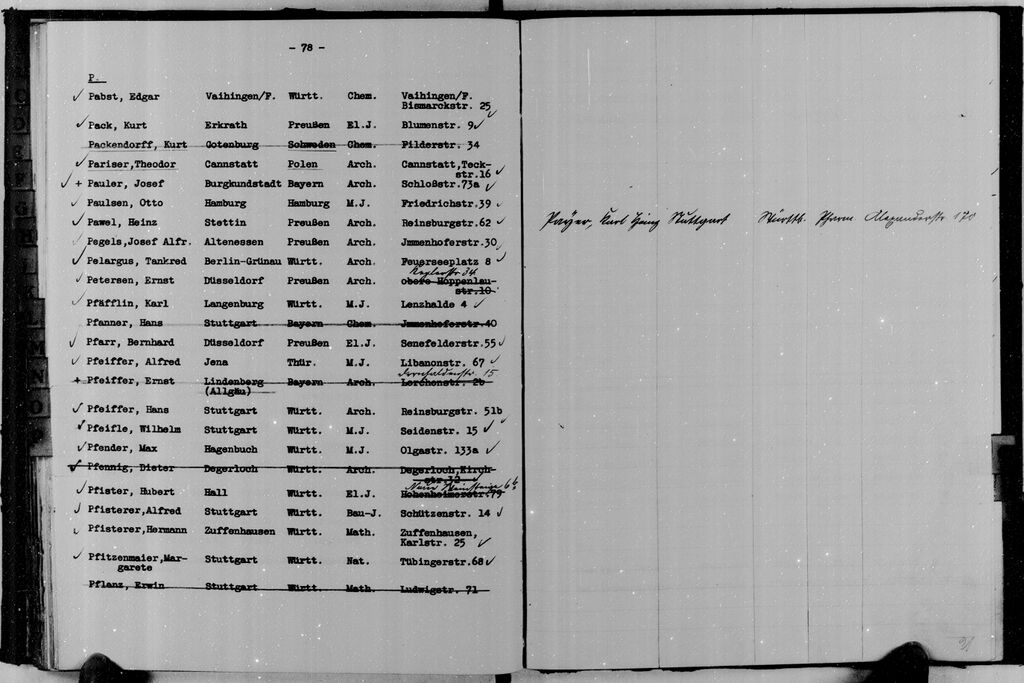 - 78 -
P.
✓ Pabst, Edgar Vaihingen/F. Württ. Chem. Vaihingen/F.
Bismarckstr. 25 ✓
✓ Pack, Kurt Erkrath Preußen El.J. Blumenstr. 9 ✓
Packendorff, Kurt Gotenburg Schweden Chem. Filderstr. 34
✓ Pariser,Theodor Cannstatt Polen Arch. Cannstatt,Teck-
str.16 ✓
✓ + Pauler, Josef Burgkundstadt Bayern Arch. Schloßstr.73a ✓
✓ Paulsen, Otto Hamburg Hamburg M.J. Friedrichstr.39 ✓
✓ Pawel, Heinz Stettin Preußen Arch. Reinsburgstr.62 ✓
Payer, Karl Heinz Stuttgart Württb. Pharm Alexanderstr 170
✓ Pegels,Josef Alfr. Altenessen Preußen Arch. Jmmenhoferstr.30 ✓
✓ Pelargus, Tankred Berlin-Grünau Württ. Arch. Feuerseeplatz 8 ✓
Keplerstr. 34
✓ Petersen, Ernst Düsseldorf Preußen Arch. obere Hoppenlau-
str.10
✓ Pfäfflin, Karl Langenburg Württ. M.J. Lenzhalde 4 ✓
Pfanner, Hans Stuttgart Bayern Chem. Jmmenhoferstr.40
✓ Pfarr, Bernhard Düsseldorf Preußen El.J. Senefelderstr.55 ✓
✓ Pfeiffer, Alfred Jena Thür. M.J. Libanonstr. 67 ✓
15
+ Pfeiffer, Ernst Lindenberg Bayern Arch. Lerchenstr. 2b
(Allgäu)
✓ Pfeiffer, Hans Stuttgart Württ. Arch. Reinsburgstr. 51b ✓
✓ Pfeifle, Wilhelm Stuttgart Württ. M.J. Seidenstr. 15 ✓
✓ Pfender, Max Hagenbuch Württ. M.J. Olgastr. 133a ✓
✓ Pfennig, Dieter Degerloch Württ. Arch. Degerloch,Kirch-
str.32
Neue Weinsteige 66
✓ Pfister, Hubert Hall Württ. El.J. Hohenheimerstr.79
✓ Pfisterer,Alfred Stuttgart Württ. Bau-J. Schützenstr. 14 ✓
✓ Pfisterer,Hermann Zuffenhausen Württ. Math. Zuffenhausen,
Karlstr. 25 ✓
✓ Pfitzenmaier,Mar- Stuttgart Württ. Nat. Tübingerstr.68 ✓
garete
Pflanz, Erwin Stuttgart Württ. Math. Ludwigstr. 71